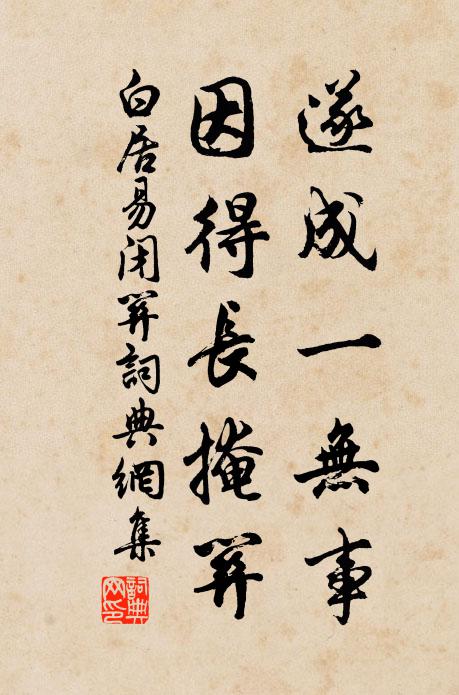 遂成一無事
因得長掩關
白居易閉關詞典網集
詞典网印